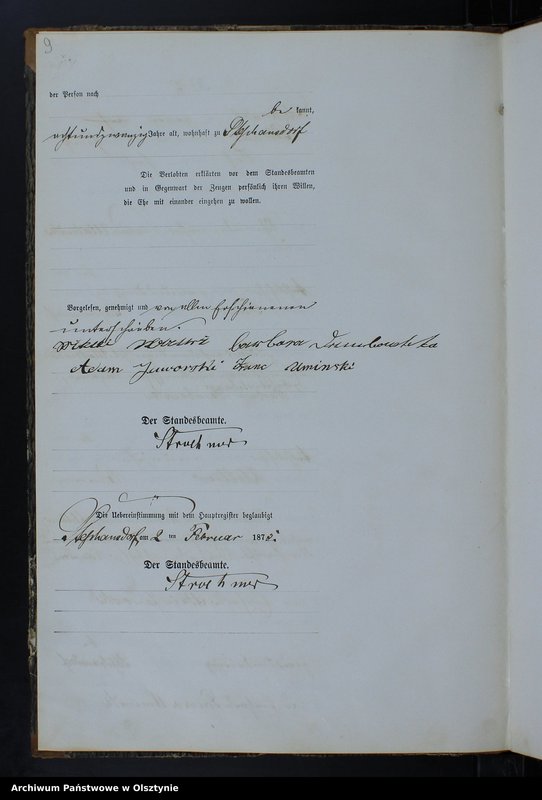 9
der Person nach
be kannt,
achtundzwanzig Jahre alt, wohnhaft zu
Die Verlobten erklärten vor dem Standesbeamten
und in Gegenwart der Zeugen persönlich ihren Willen,
die Ehe mit einander eingehen zu wollen.
Vorgelesen, genehmigt und von allen Erschienenen
unterschrieben.
barbara
Adam Jaworski Franc Uminski
Der Standesbeamte.
Die Uebereinstimmung mit dem Hauptregister beglaubigt
am 2 ten Februar 187
Der Standesbeamte.
Archiwum Państwowe w Olsztynie